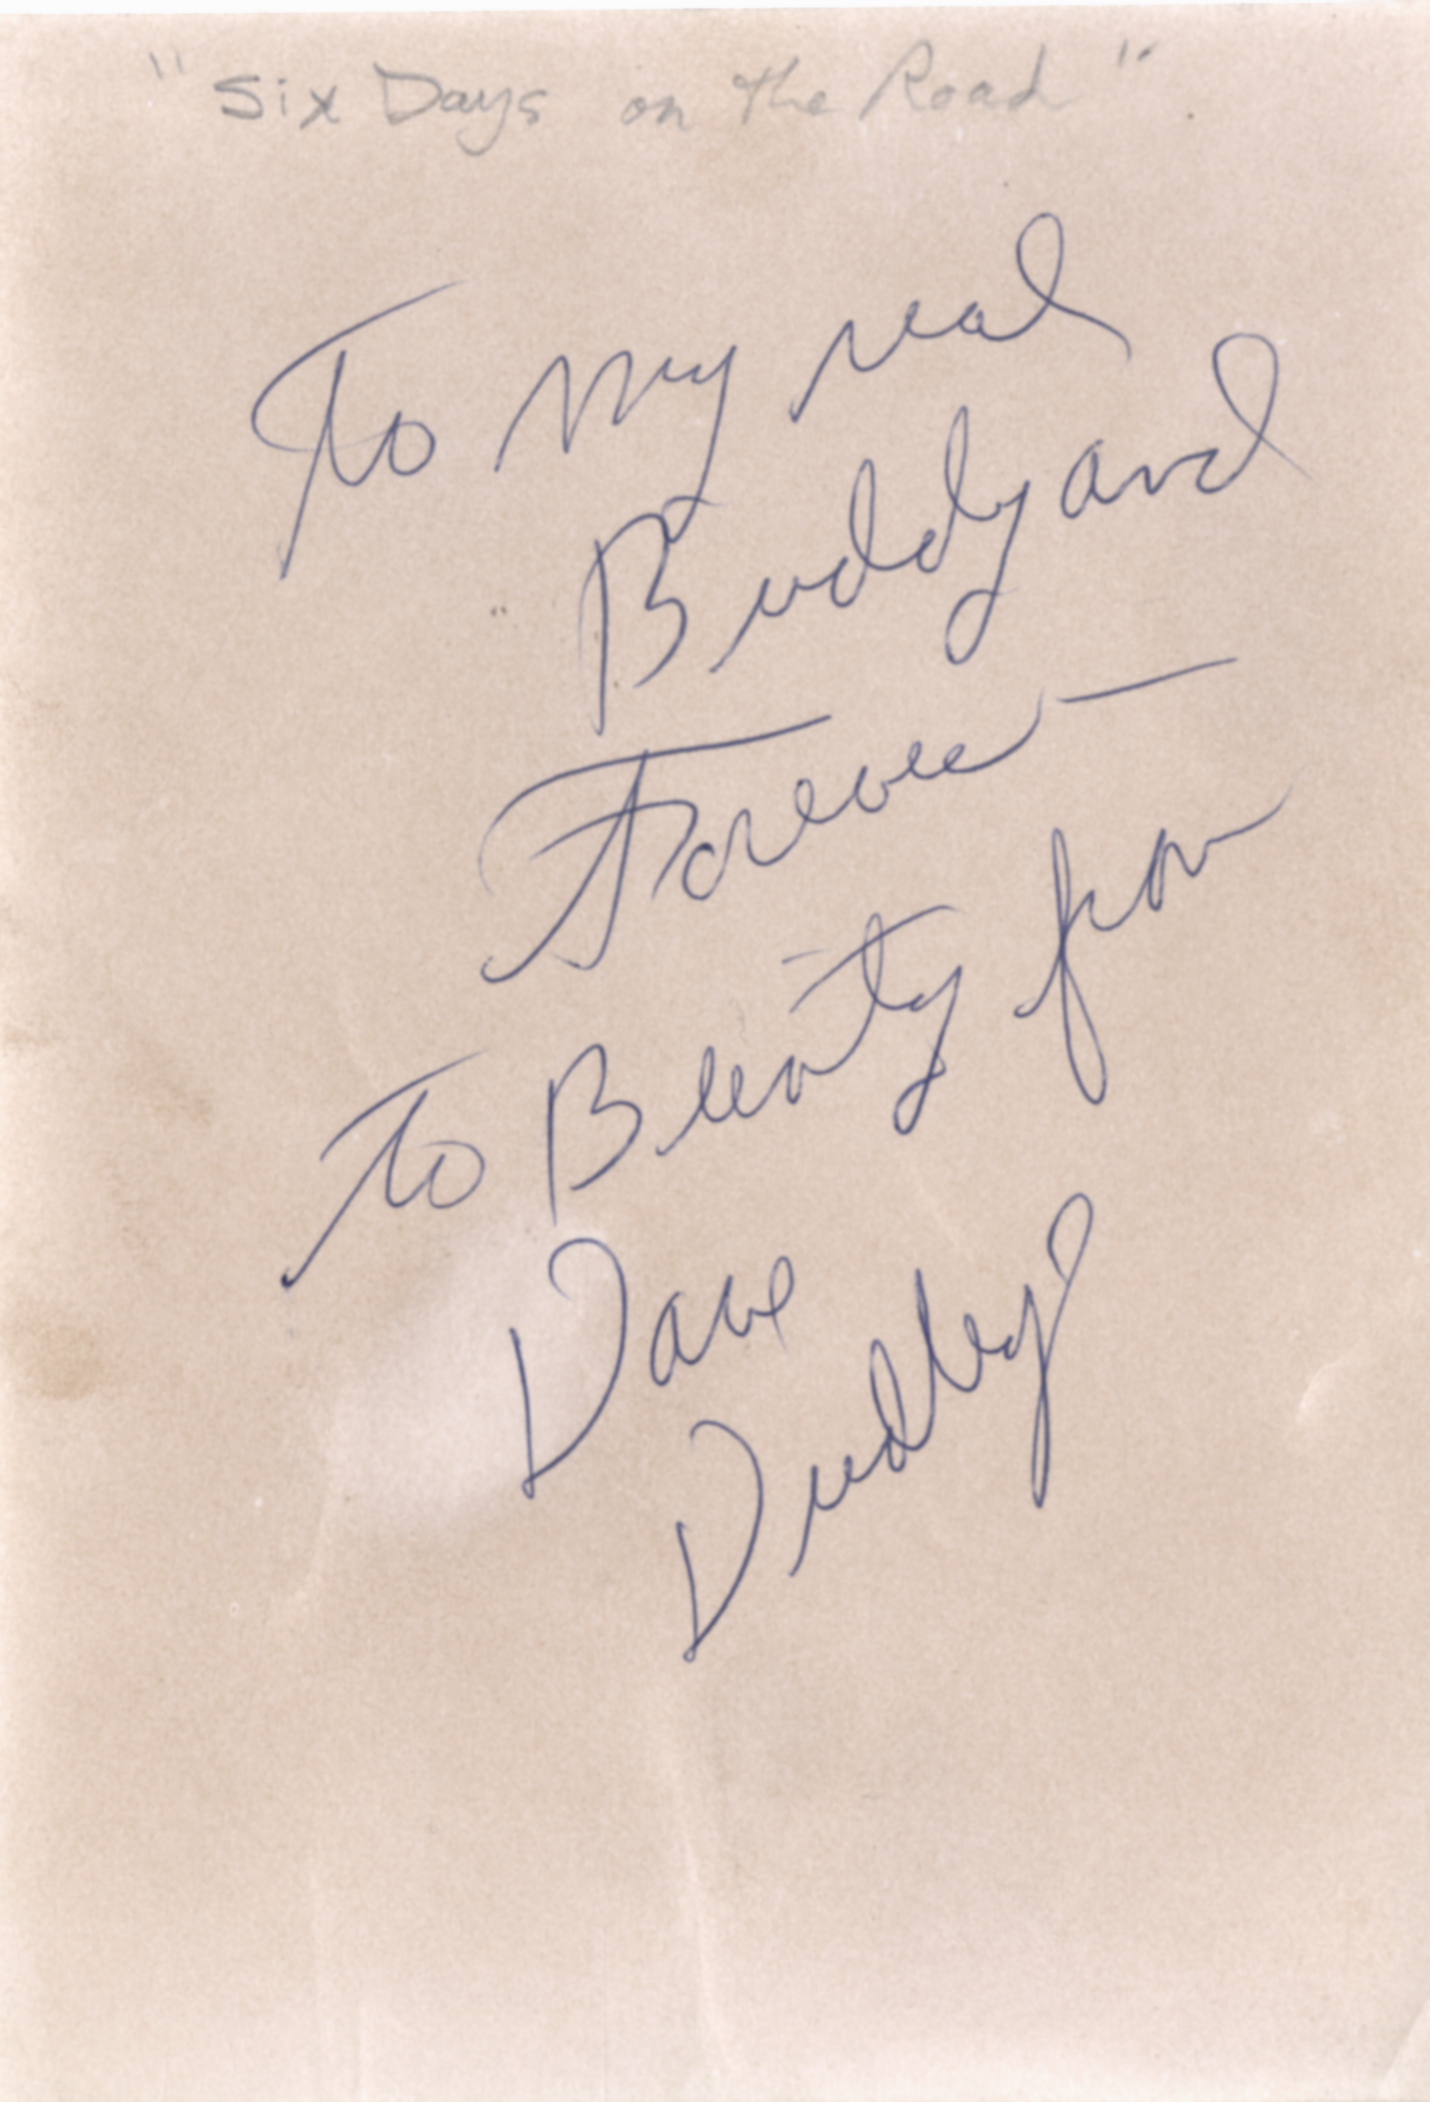 "Six Days on the Road".
To my real
Buddy and
Forever —
to from
Dave
Dudley